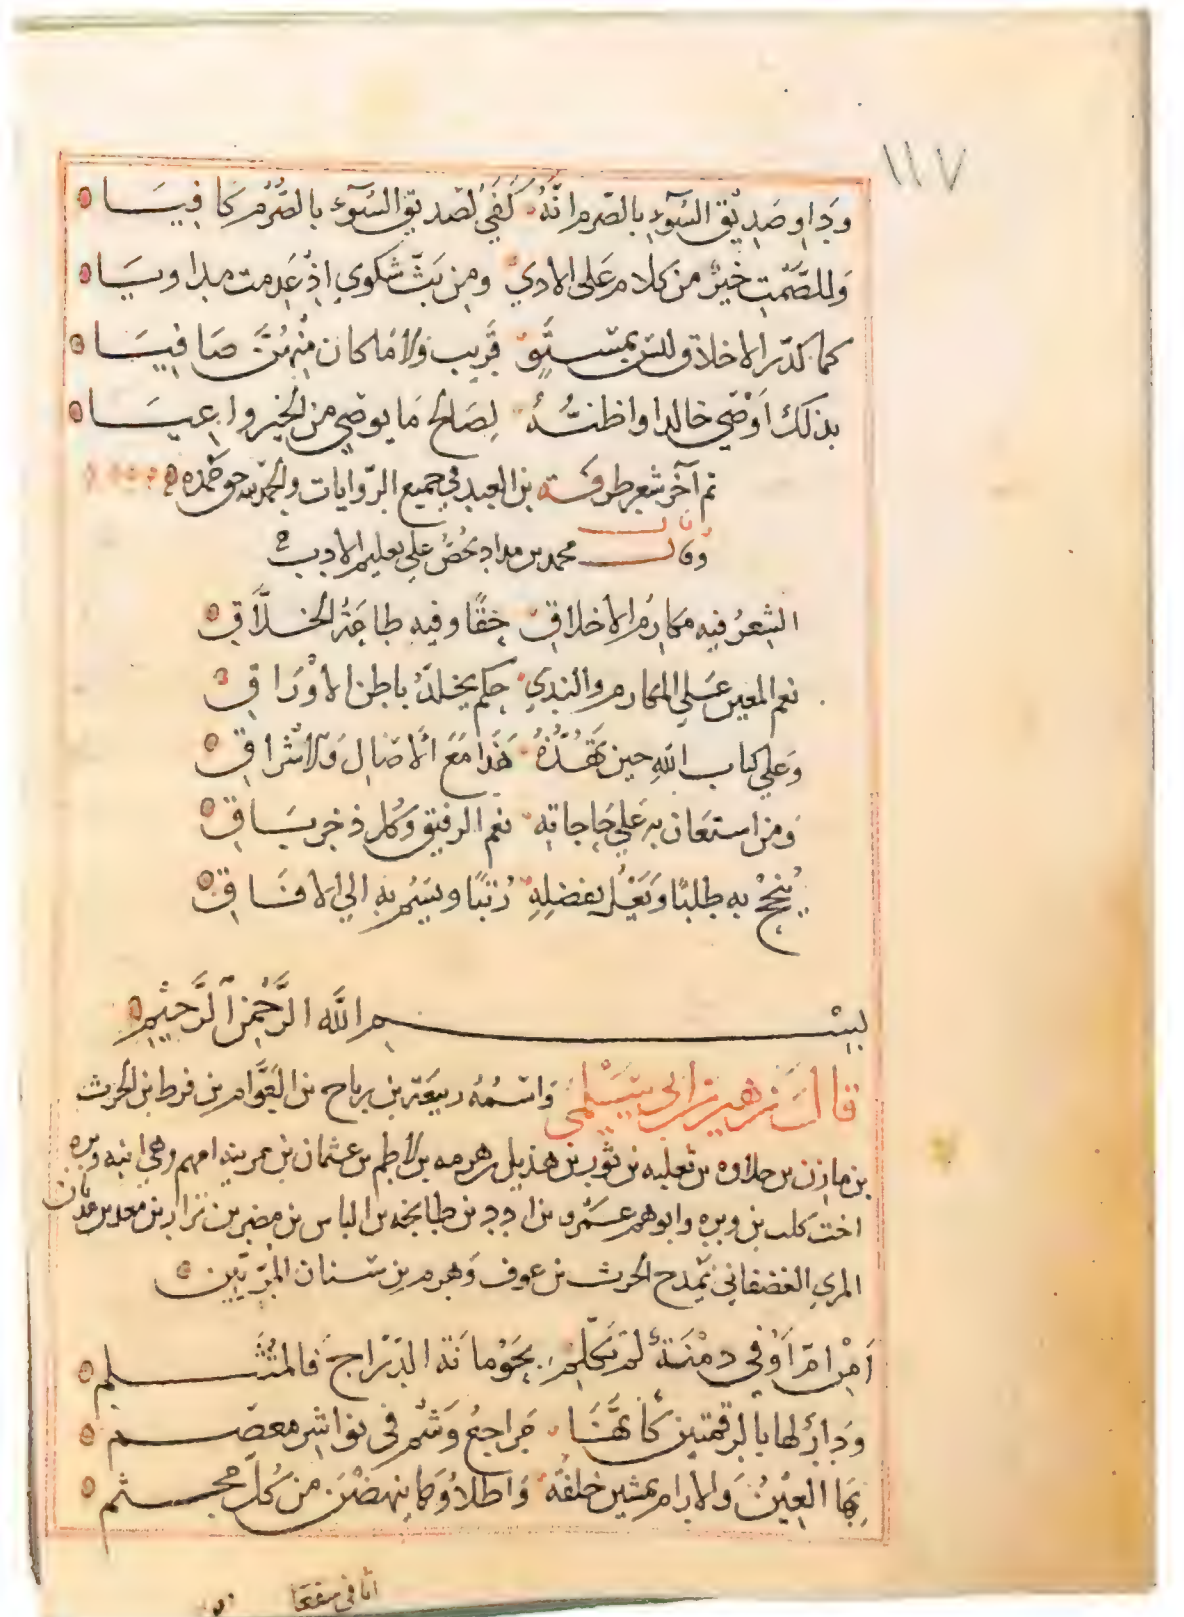 ١١٧
وَدَاوِ صَدِيْقَ السَّوْءِ بالصّرم انَّهُ كَفَىٰ لصَديق السَّوْء بالصُّرْم كَافِيَا
وَللصَّمْتِ خَيرٌ من كلام عَلى الاذي ومِن بَثّ شكوى اِذْ عَدِمت مداويَا
كما كَدّر الاخلاق ليسَ بمستَقٍ قَرِيب ولا ما كان مِنْهُنَّ صَافِيَا
بذلك اَوْصَى خالدا واظنُّهُ لِصَالح مَا يوصي من الخير واعيَا
تم آخر شعر طرفة بن العبد في جميع الروايات والحمد لله حق حمده
وقال
وقال محمد بن مداد يحُضُّ علي تعليم الادب
الشِعرُ فيه مكارمُ الاخلاقِ حِقًا وفيه طاعَةُ الخلَّاقِ
نعم المعين عَلي المكارم والندي حِكم يخلدُ باطن الأوْرَاقِ
وَعَلي كتاب اللّهِ حين تَهُذّهُ هَذا مَعَ الْاصَالِ وَالاشْراقِ
وَمن استعَان به عَلي حَاجاته نعم الرفيق وكل ذخر بَاقِ
يُنجحْ به طلبًا وَيَعْلُ بفضلِهِ رُتَبًا ويَسْمُ بهِ الي الافَاقِ
بِسْمِ اللَّه الرَّحْمنِ الرَّحِيْمِ
قال زهير بن ابي سُلْمى وَاسْمُهُ ربيعَة بن رباح بن العَوَّام بن قرط بن الحرث
بن مازن بن حلاوه بن ثعلبه بن ثور بن هذيل بن هرمه بن لاطم بن عثمان بن مزينه امهم وهي ابنه وبره
اخت كلب بن وبره وابوهم عَمْرو بن ادد بن طابخه بن الياس بن مضر بن نزار بن معد بن عدنان
المري الغضفاني يَمْدح الحرث بن عوف وَهرم بن سنان المُرّيَّين
اَمِنْ امّ اَوْفَى دِمْنَةٌ لَمْ تَكَلَّمِ بحَوْمانَة الدَرّاج فالمُتَثَلمِ
وَدَارٌ لها بالرقمتين كأنَّهَا مَراجعُ وَشْمٍ في نواشرِ معصَمِ
بِهَا العِيْنُ وَالارام يمشين خلفَهُ وَاطلاؤُها ينهضْنَ من كُلِّ مجثمِ
اثافي سفعا